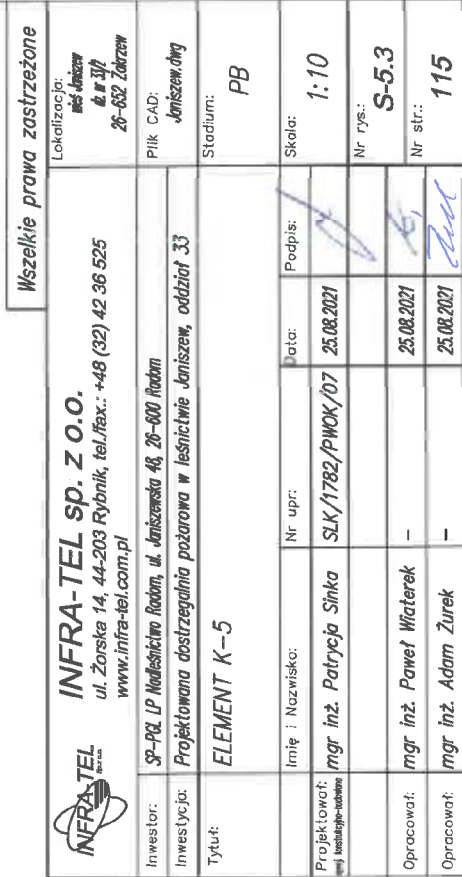 Wszelkie prawa zastrzeżone
INFRA-TEL
Sp. z o.o.
INFRA-TEL sp. z o.o.
ul. Żorska 14, 44-203 Rybnik, tel./fax.: +48 (32) 42 36 525
www.infra-tel.com.pl
Lokalizacja:
wieś Janiszew
dz. nr 33/2
26-652 Zakrzew
Inwestor: SP-PGL LP Nadleśnictwo Radom, ul. Janiszewska 48, 26-600 Radom
Plik CAD:
Janiszew.dwg
Inwestycja: Projektowana dostrzegalnia pożarowa w leśnictwie Janiszew, oddział 33
Tytuł:
ELEMENT K-5
Stadium:
PB
Imię i Nazwisko: Nr upr: Data: Podpis:
Skala:
1:10
Projektował: mgr inż. Patrycja Sinka SLK/1782/PWOK/07 25.08.2021
spec. konstrukcyjno-budowlana
Nr rys.:
S-5.3
Opracował: mgr inż. Paweł Wiaterek – 25.08.2021
Nr str.:
115
Opracował: mgr inż. Adam Żurek – 25.08.2021